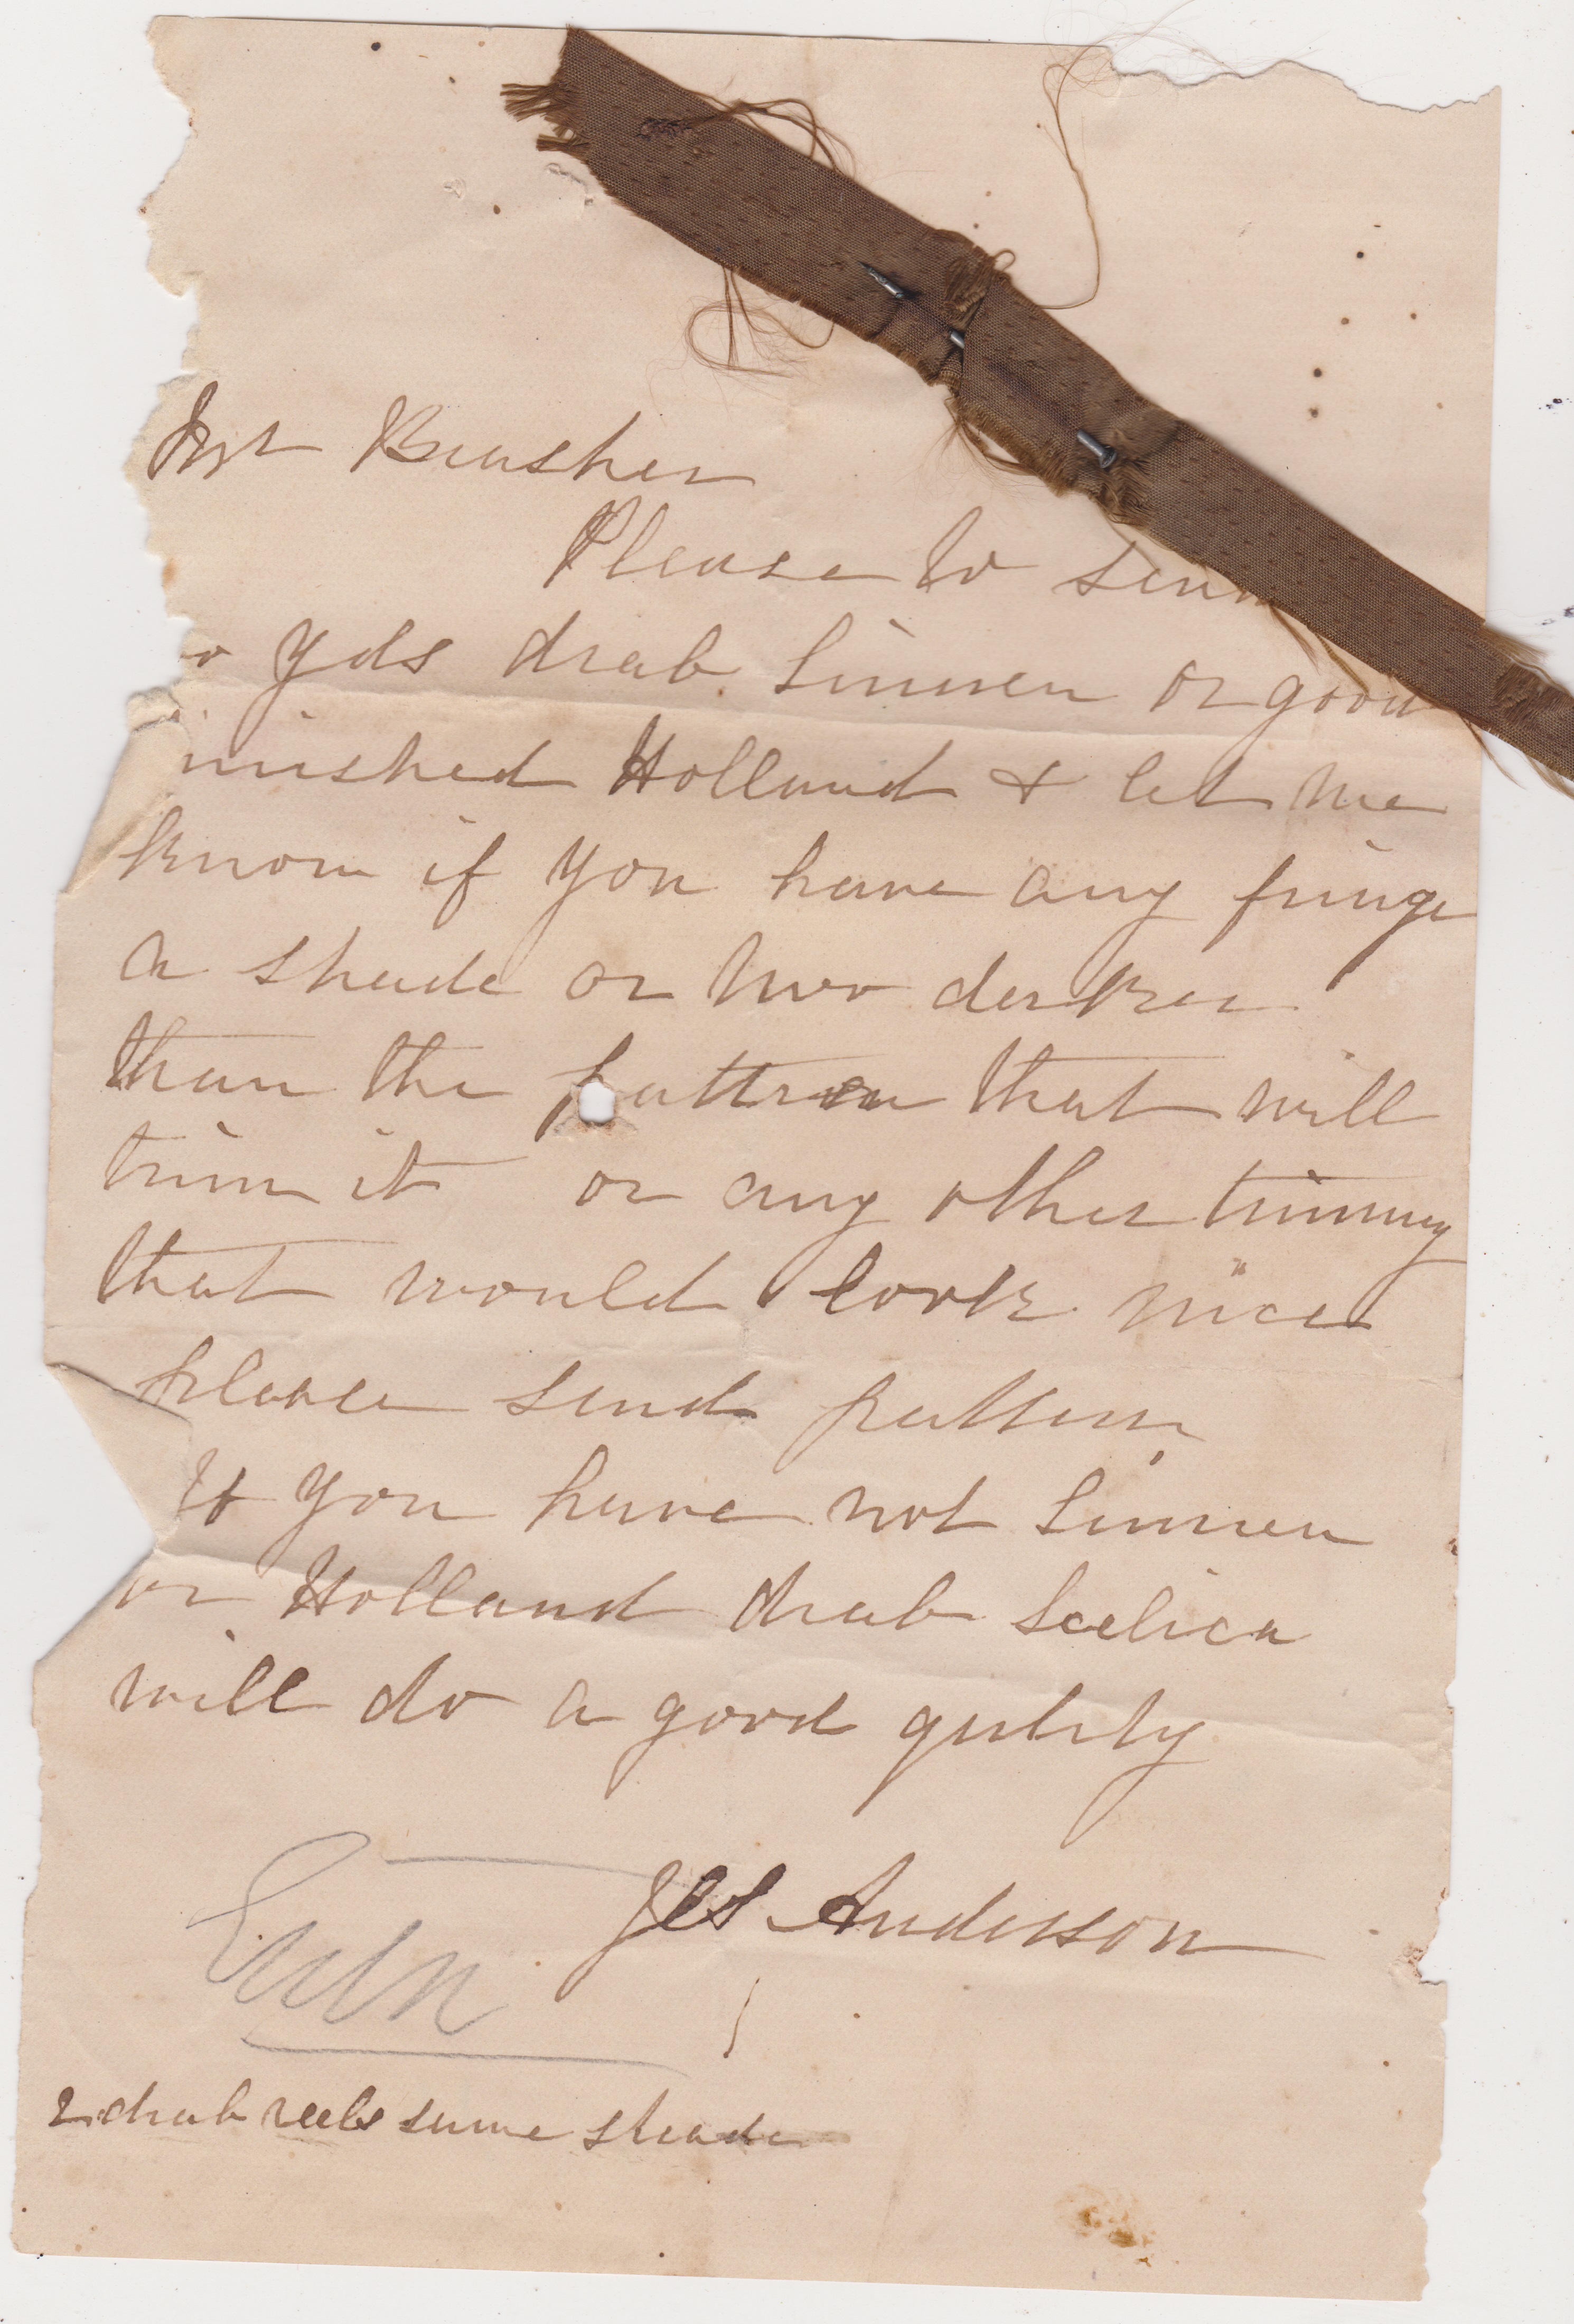 Mr Brusher
Please to send
o yds drab Linnen or good
inished Holland & let me
know if you have any fringe
a shade or two darker
than the pattren that will
trim it or any other triming
that would look nice
please send pattern
If you have not Linnen
or Holland drab Scelica
will do a good qulity
Jas Anderson
2 drab reels same shade